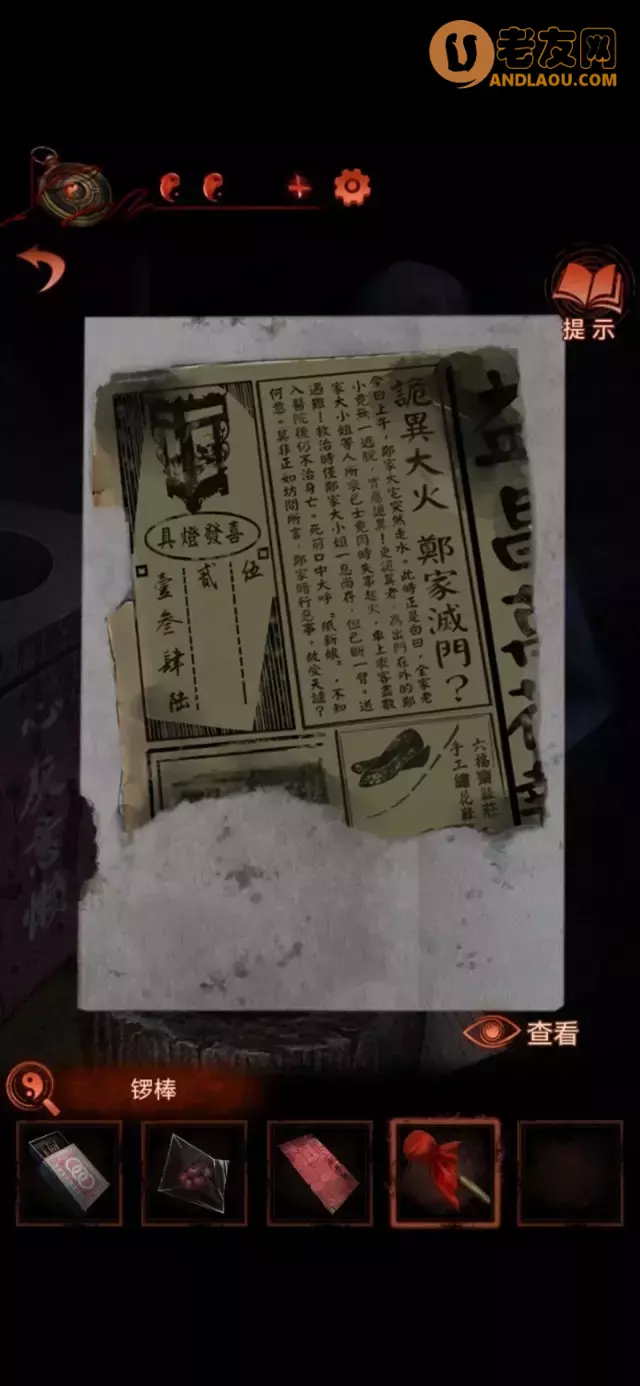 老友网
ANDLAOU.COM
提示
益昌
詭異大火 鄭家滅門？
今日上午，鄭家大宅突然走水。此時正是白日，全家老
小竟無一逃脫，實屬詭異！更詭異者，爲出門在外的鄭
家大小姐等人所乘巴士竟同時失事起火，車上乘客盡數
遇難！救治時僅鄭家大小姐一息尚存，但已斷一臂。送
入醫院後仍不治身亡。死前口中大呼『紙新娘』，不知
何意。莫非正如坊間所言，鄭家暗行惡事，故受天譴？
具燈發喜
伍
貳
壹叁肆陸
六福齋鞋莊
手工繡花鞋
心灰意懶
查看
锣棒